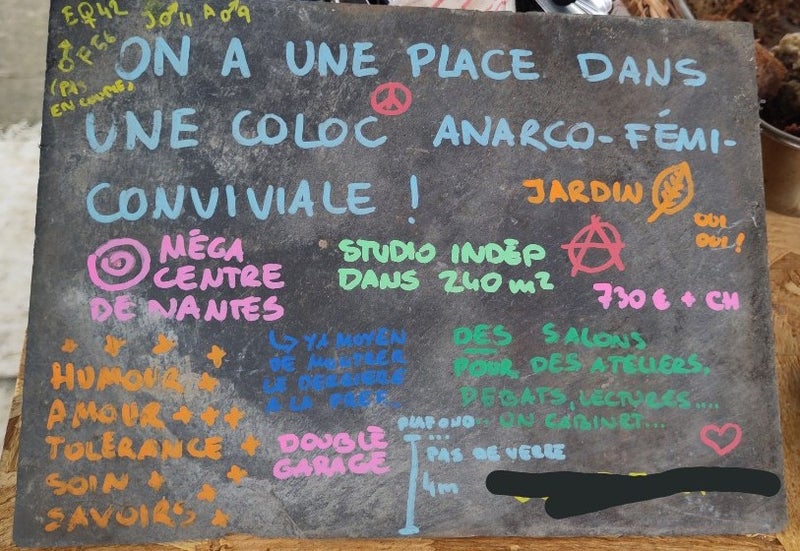 EQ42
J♂11 A♂9
♂F56
(PAS
EN COUPLE)
ON A UNE PLACE DANS
UNE COLOC ANARCO-FÉMI-
CONVIVIALE !
JARDIN
OUI
OUI !
MÉGA
CENTRE
DE NANTES
STUDIO INDÉP
DANS 240 m²
730 € + CH
↳ YA MOYEN
DE MONTRER
LE DERRIÈRE
A LA PREF...
DES SALONS
POUR DES ATELIERS,
DÉBATS, LECTURES....
UN CABINET...
HUMOUR +
AMOUR +++
TOLÉRANCE +
SOIN +
SAVOIRS +
DOUBLE
GARAGE
PLAFOND...
PAS DE VERRE
4m